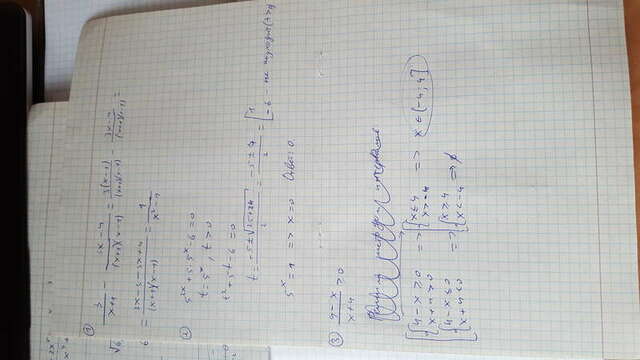 ①
3/(x+1) - (3x-4)/((x+1)(x-1)) = 3(x-1)/((x+1)(x-1)) - (3x-4)/((x+1)(x-1)) =
= (3x-3-3x+4)/((x+1)(x-1)) = 1/(x²-1)
②
5^(2x) + 5·5^x - 6 = 0
t = 5^x, t > 0
t² + 5t - 6 = 0
t = (-5±√(25+24))/2 = (-5±7)/2 = [1
-6 - не подходит (t>0)
5^x = 1 => x = 0 Ответ: 0
③ (4-x)/(x+4) ≥ 0
методом интервалов
{4-x ≥ 0 => {x ≤ 4 => x ∈ (-4; 4]
{x+4 > 0 {x > -4
{4-x ≤ 0 => {x ≥ 4 => ∅
{x+4 < 0 {x < -4